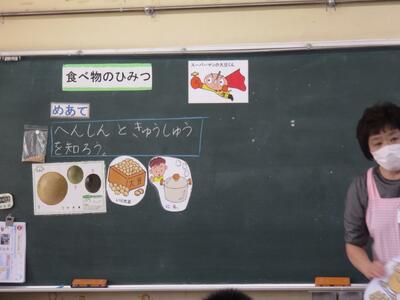 食べ物のひみつ
スーパーマンの大豆くん
めあて
へんしんときゅうしゅう
を知ろう。
大豆
いり大豆
にる